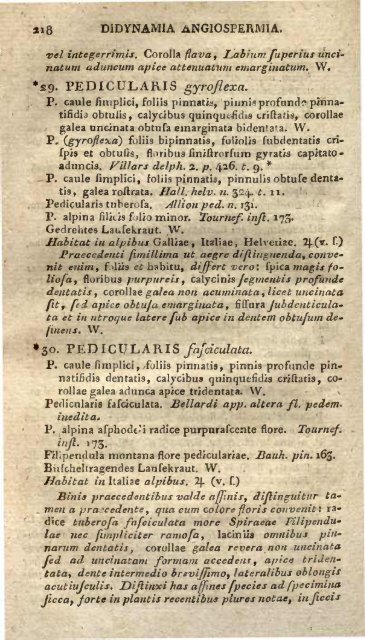 218 DIDYNAMIA ANGIOSPERMIA.
vel integerrimis. Corolla flava, Labium ſuperius unci-
natum aduncum apice attenuatum emarginatum. W.
*29. PEDICULARIS gyroflexa.
P. caule ſimplici, foliis pinnatis, pinnis profunde pinna-
tifidis obtuſis, calycibus quinquefidis criſtatis, corollae
galea uncinata obtuſa emarginata bidentata. W.
P. (gyroflexa) foliis bipinnatis, foliolis ſubdentatis cri-
ſpis et obtuſis, floribus ſiniſtrorſum gyratis capitato-
aduncis. Villars delph. 2. p. 426. t. 9. *
P. caule ſimplici, foliis pinnatis, pinnulis obtuſe denta-
tis, galea roſtrata. Hall. helv. n. 324. t. 11.
Pedicularis tuberoſa. Allion ped. n. 131.
P. alpina filicis folio minor. Tournef. inſt. 173.
Gedrehtes Lauſekraut. W.
Habitat in alpibus Galliae, Italiae, Helvetiae. ♃ (v. ſ.)
Praecedenti ſimillima ut aegre diſtinguenda, conve-
nit enim, foliis et habitu, differt vero: ſpica magis fo-
lioſa, floribus purpureis, calycinis ſegmentis profunde
dentatis, corollae galea non acuminata, licet uncinata
ſit, ſed apice obtuſa emarginata, fiſſura ſubdenticula-
ta et in utroque latere ſub apice in dentem obtuſum de-
ſinens. W.
*30. PEDICULARIS faſciculata.
P. caule ſimplici, foliis pinnatis, pinnis profunde pin-
natifidis dentatis, calycibus quinquefidis criſtatis, co-
rollae galea adunca apice tridentata. W.
Pedicularis faſciculata. Bellardi app. altera fl. pedem.
inedita.
P. alpina aſphodeli radice purpuraſcente flore. Tournef.
inſt. 173.
Filipendula montana flore pediculariae. Bauh. pin. 163.
Büſcheltragendes Lauſekraut. W.
Habitat in Italiae alpibus. ♃ (v. ſ.)
Binis praecedentibus valde affinis, diſtinguitur ta-
men a praecedente, qua cum colore floris convenit: ra-
dice tuberoſa faſciculata more Spiraeae Filipendu-
lae nec ſimpliciter ramoſa, laciniis omnibus pin-
narum dentatis, corollae galea revera non uncinata
ſed ad uncinatam formam accedens, apice triden-
tata, dente intermedio breviſſimo, lateralibus oblongis
acutiuſculis. Diſtinxi has affines ſpecies ad ſpecimina
ſicca, forte in plantis recentibus plures notae, in ſiccis